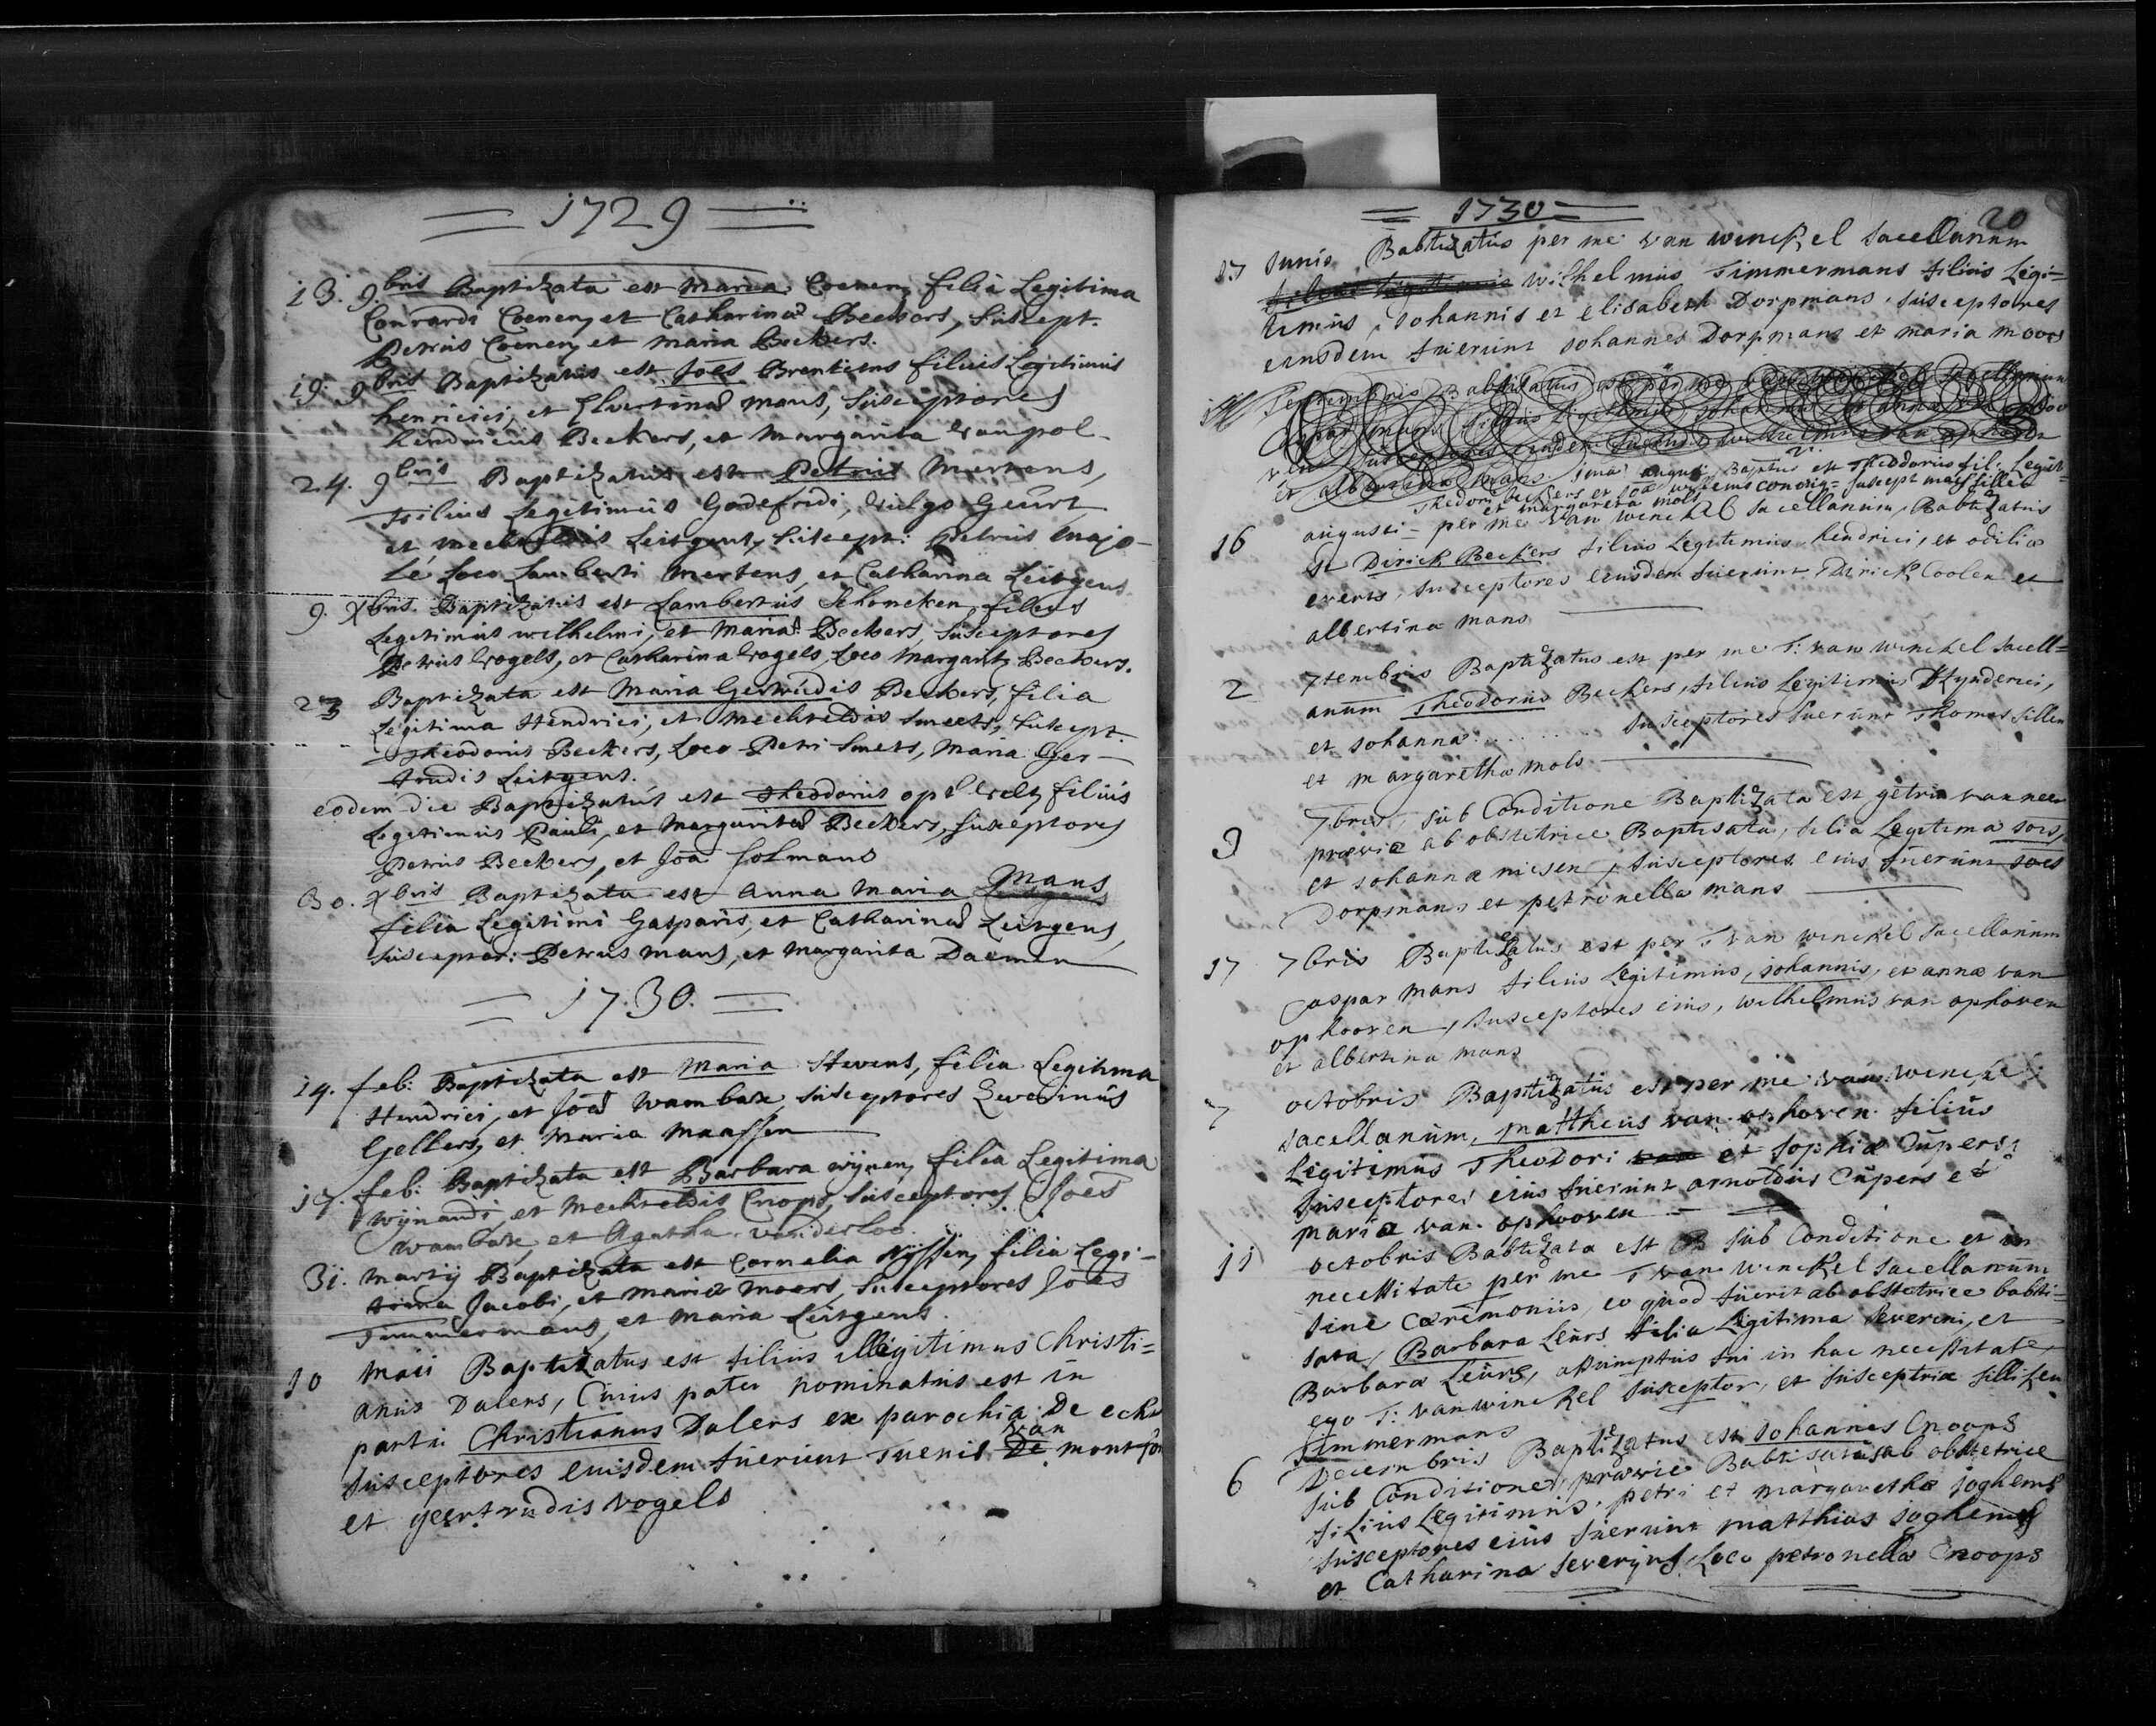 1729
13. 9bris Baptizata est Maria Coenen, filia Legitima
Conrardi Coenen, et Catharinae Beckers, suscept.
Petrus Coenen, et maria Beckers.
19. 9bris Baptizatus est Joes Brentiens filius Legitimus
henrici, et mans, susceptores
hendricus Beckers, et Margarita vanpol-
24. 9bris Baptizatus est Petrus Mertens,
Filius Legitimus Godefridi, vulgo Geurt
et mechtildis Leitgens, suscept: Petrus majo-
le Loco Lamberti Mertens, et Catharina Leitgens
9. Xbris. Baptizatus est Lambertus Schoncken, filius
Legitimus wilhelmi, et Mariae Beckers, susceptores
Petrus vogels, et Catharina vogels, Loco Margarit, Beckers.
23 Baptizata est Maria Gertrudis Beckers, filia
Legitima Hendrici, et mechteldis smeets, suscept.
Theodorus Beckers, Loco Petri smets, Maria Ger-
trudis Leitgens.
eodem die Baptizatus est Theodorus opt velt, filius
Legitimus Pauli, et Margaritae Beckers, susceptores
Petrus Beckers, et Joa Solmans
30. xbris Baptizata est Anna Maria Mans
filia Legitimi Gasparis, et Catharinae Leitgens,
susceptor: Petrus mans, et Margarita Daemen
1730.
14. feb: Baptizata est Maria Stevens, filia Legitima
Hendrici, et Joae Wambax, susceptores Severinus
Gellers, et Maria Maassen
17. feb: Baptizata est Barbara wijnen, filia Legitima
wijnandi, et Mechteldis Cnops, susceptores Joes
Wambax, et Agatha vanderloo.
31. Martij Baptizata est Cornelia Nijssen, filia Legi-
tima Jacobi, et Mariae Moers, susceptores Joes
Timmermans, et Maria Leitgens.
10 Maii Baptizatus est filius illegitimus Christi=
anus Dalers, Cuius pater nominatus est in
partu Christianus Dalers ex parochia De echt
susceptores euisdem fuerunt Tuenis De van montfor
et geertrudis vogels
1730 20
27 Junis Babtizatus per me van winckel sacellanum
filius legitimus wilhelmus Timmermans filius Legi=
timus, Johannis et elisabeth Dorpmans, susceptores
eiusdem fuerunt Johannes Dorpmans et maria moors
Septembris Babtizatus est per me van winckel sacellanum
Caspar mans filius Legitimus Johannis et anna van opho
ven susceptores eiusdem fuerunt wilhelmus van ophoven
et albertina mans. 1ma augusti Baptus est Theodorus fil: Legit=
Thedori beckers et Joae willems coniug= suscept matthis sillen
et margareta mols
16 augusti - per me van winckel sacellanum, Babtizatus
st Dirick Beckers filius Legitimus hendrici, et odiliæ
everts, susceptores euisdem fuerunt Dirick Coolen et
albertina mans
2 7tembris Baptizatus est per me T: van winckel sacell=
anum Theodorus Beckers, filius Legitimus Hynderici,
et Johannæ . . . . . . . . susceptores fuerunt Thomas sillen
et margaretha mols
3 7bris, sub Conditione Baptizata est getru van neer
præviæ ab obstetrice Baptisata, filia Legitima Jois,
et Johannæ niesen, susceptores eius fuerunt Joes
Dorpmans et petronella mans
17 7bris Baptizatus est per T van winckel sacellanum
Caspar mans filius Legitimus, Johannis, et annæ van
ophooven, susceptores eius, wilhelmus van ophoven
et albertina mans
7 octobris Baptizatus est per me van winckel
sacellanum, mattheus van ophoven filius
Legitimus Theodori van et sophiæ Cupers:
susceptores eius fuerunt arnoldus Cüpers et
maria van ophooven
11 octobris Babtizata est B sub Conditione et in
necessitate per me T van winckel sacellanum
sine cæremoniis, eo quod fuerit ab obstetrice babti=
sata, Barbara Leurs filia Legitima severini, et
Barbara Leurs, assumptus fui in hac necessitate,
ego T: van winckel susceptor, et susceptrix silliken
Timmermans
6 Decembris Baptizatus est Johannes Cnoops
sub Conditione, prævie Babtisatus ab obstetrice
filius Legitimus petri et margarethæ Joghems
susceptores eius fuerunt matthias Joghems
et Catharina severijns, Loco petronella Cnoops